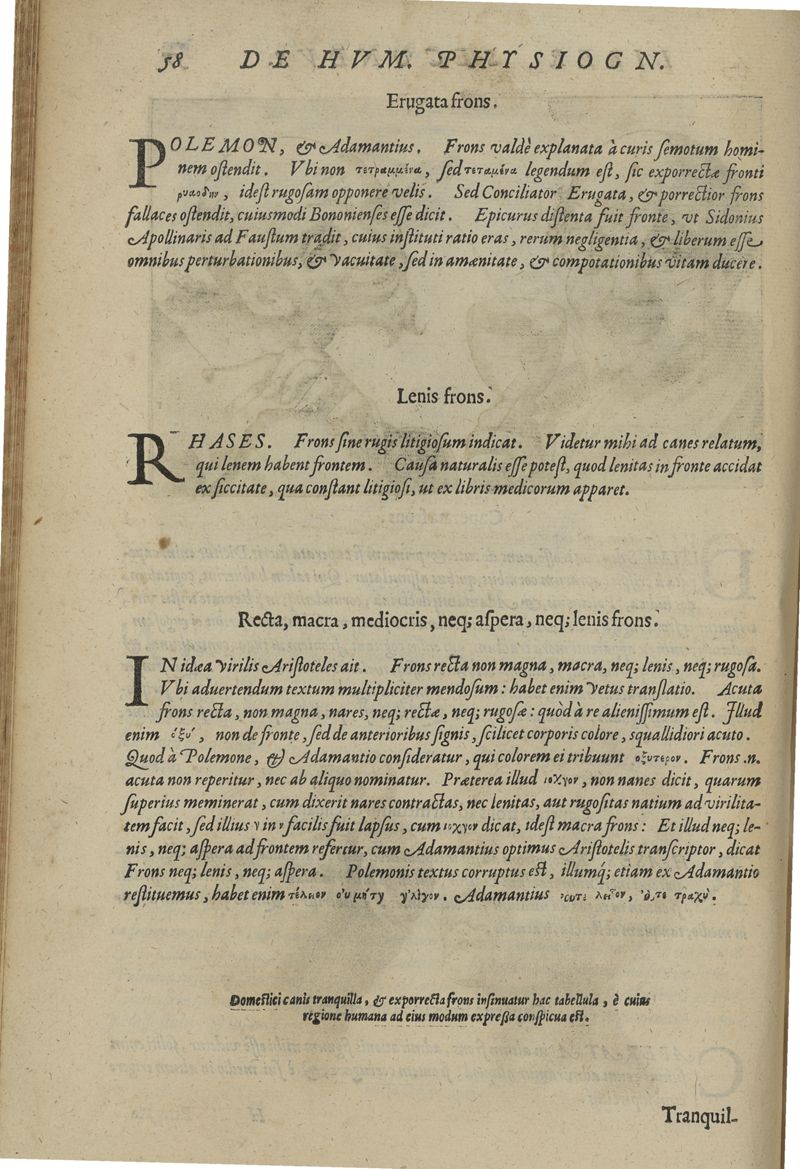 58 DE HVM. PHYSIOGN.
Erugata frons.
POLEMON, & Adamantius. Frons valdè explanata à curis ſemotum homi-
nem oſtendit. Vbi non τετραμμένα, ſed τεταμένα legendum eſt, ſic exporrectæ fronti
ideſt rugoſam opponere velis. Sed Conciliator Erugata, & porrectior frons
fallaces oſtendit, cuiuſmodi Bononienſes eſſe dicit. Epicurus diſtenta fuit fronte, vt Sidonius
Apollinaris ad Fauſtum tradit, cuius inſtituti ratio eras, rerum negligentia, & liberum eſſe
omnibus perturbationibus, & vacuitate, ſed in amænitate, & compotationibus vitam ducere.
Lenis frons.
RHASES. Frons ſine rugis litigioſum indicat. Videtur mihi ad canes relatum,
qui lenem habent frontem. Cauſa naturalis eſſe poteſt, quod lenitas in fronte accidat
ex ſiccitate, qua conſtant litigioſi, ut ex libris medicorum apparet.
Recta, macra, mediocris, neq; aſpera, neq; lenis frons.
IN idæa virilis Ariſtoteles ait. Frons recta non magna, macra, neq; lenis, neq; rugoſa.
Vbi aduertendum textum multipliciter mendoſum: habet enim vetus tranſlatio. Acuta
frons recta, non magna, nares, neq; rectæ, neq; rugoſæ: quòd à re alieniſſimum eſt. Illud
enim ὀξὺ, non de fronte, ſed de anterioribus ſignis, ſcilicet corporis colore, squallidiori acuto.
Quod à Polemone, & Adamantio conſideratur, qui colorem ei tribuunt οξυτερον. Frons .n.
acuta non reperitur, nec ab aliquo nominatur. Præterea illud ιοχνον, non nanes dicit, quarum
ſuperius meminerat, cum dixerit nares contractas, nec lenitas, aut rugoſitas natium ad virilita-
tem facit, ſed illius γ in ν facilis fuit lapſus, cum ιοχνον dicat, ideſt macra frons: Et illud neq; le-
nis, neq; aſpera ad frontem refertur, cum Adamantius optimus Ariſtotelis tranſcriptor, dicat
Frons neq; lenis, neq; aſpera. Polemonis textus corruptus eſt, illumq́; etiam ex Adamantio
reſtituemus, habet enim τέλειον Adamantius λεῖον, τραχὺ.
Domeſtici canis tranquilla, & exporrecta frons inſinuatur hac tabellula, è cuius
regione humana ad eius modum expreßa conſpicua eſt.
Tranquil-